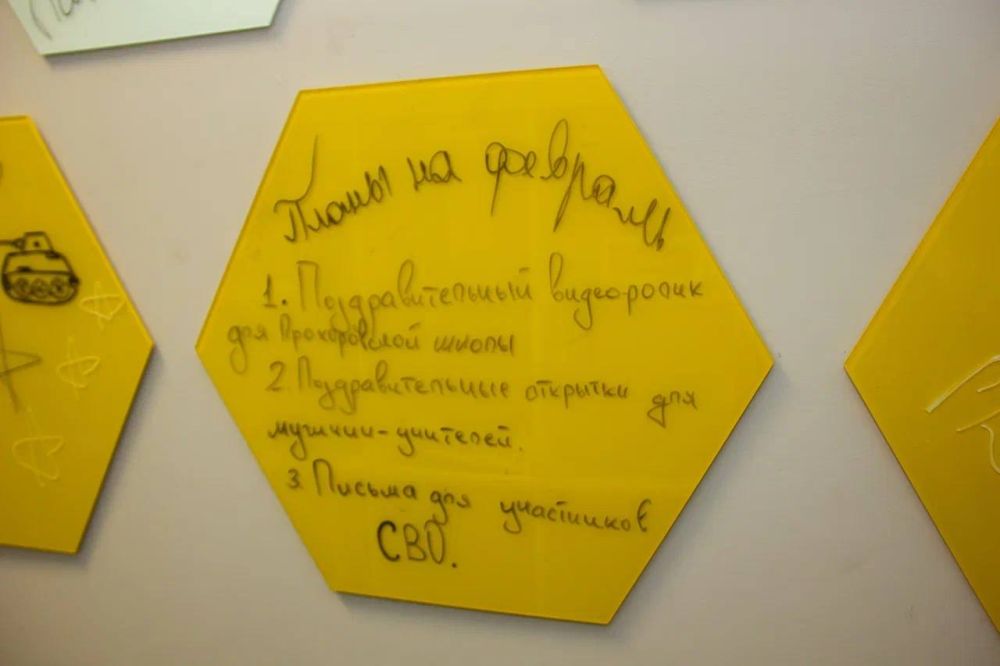 Планы на февраль
1. Поздравительный видеоролик
для Прохоровской школы
2. Поздравительные открытки для
мужчин-учителей.
3. Письма для участников
СВО.